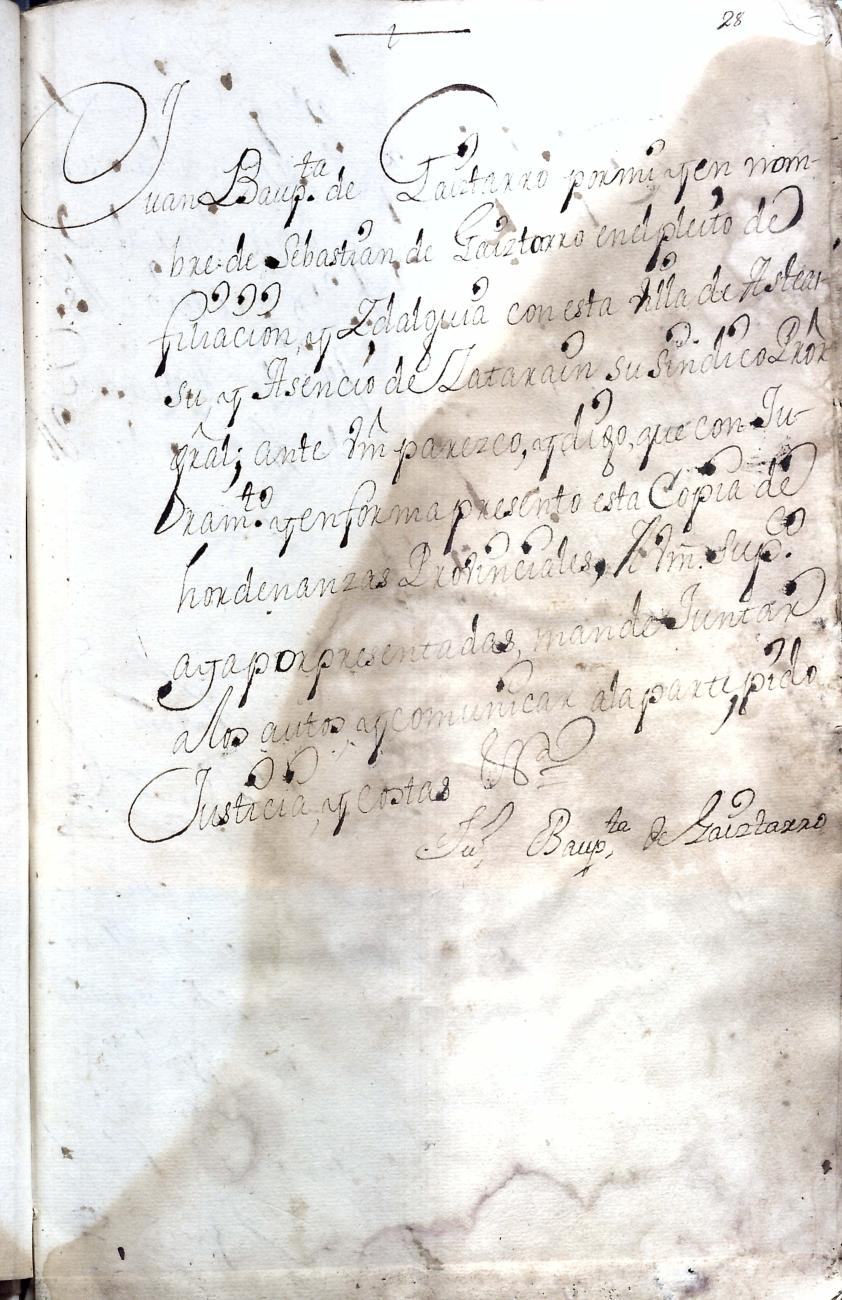 28
Juan Baup.ta de Gaiztarro por mi y en nom-
bre de Sebastian de Gaiztarro en el pleito de
filiacion, y Ydalguia con esta Villa de Asteas-
su, y Asencio de Zatarain su Sindico Pror
gral; ante Vm parezco, y digo, que con Ju-
ramto. y en forma presento esta Copia de
hordenanzas Provinciales, A Vm. Supco.
aya por presentadas, mande Juntar
a los autos y comunicar a la parte, pido
Justicia, y costas
Jun Baup,ta de Gaiztarro